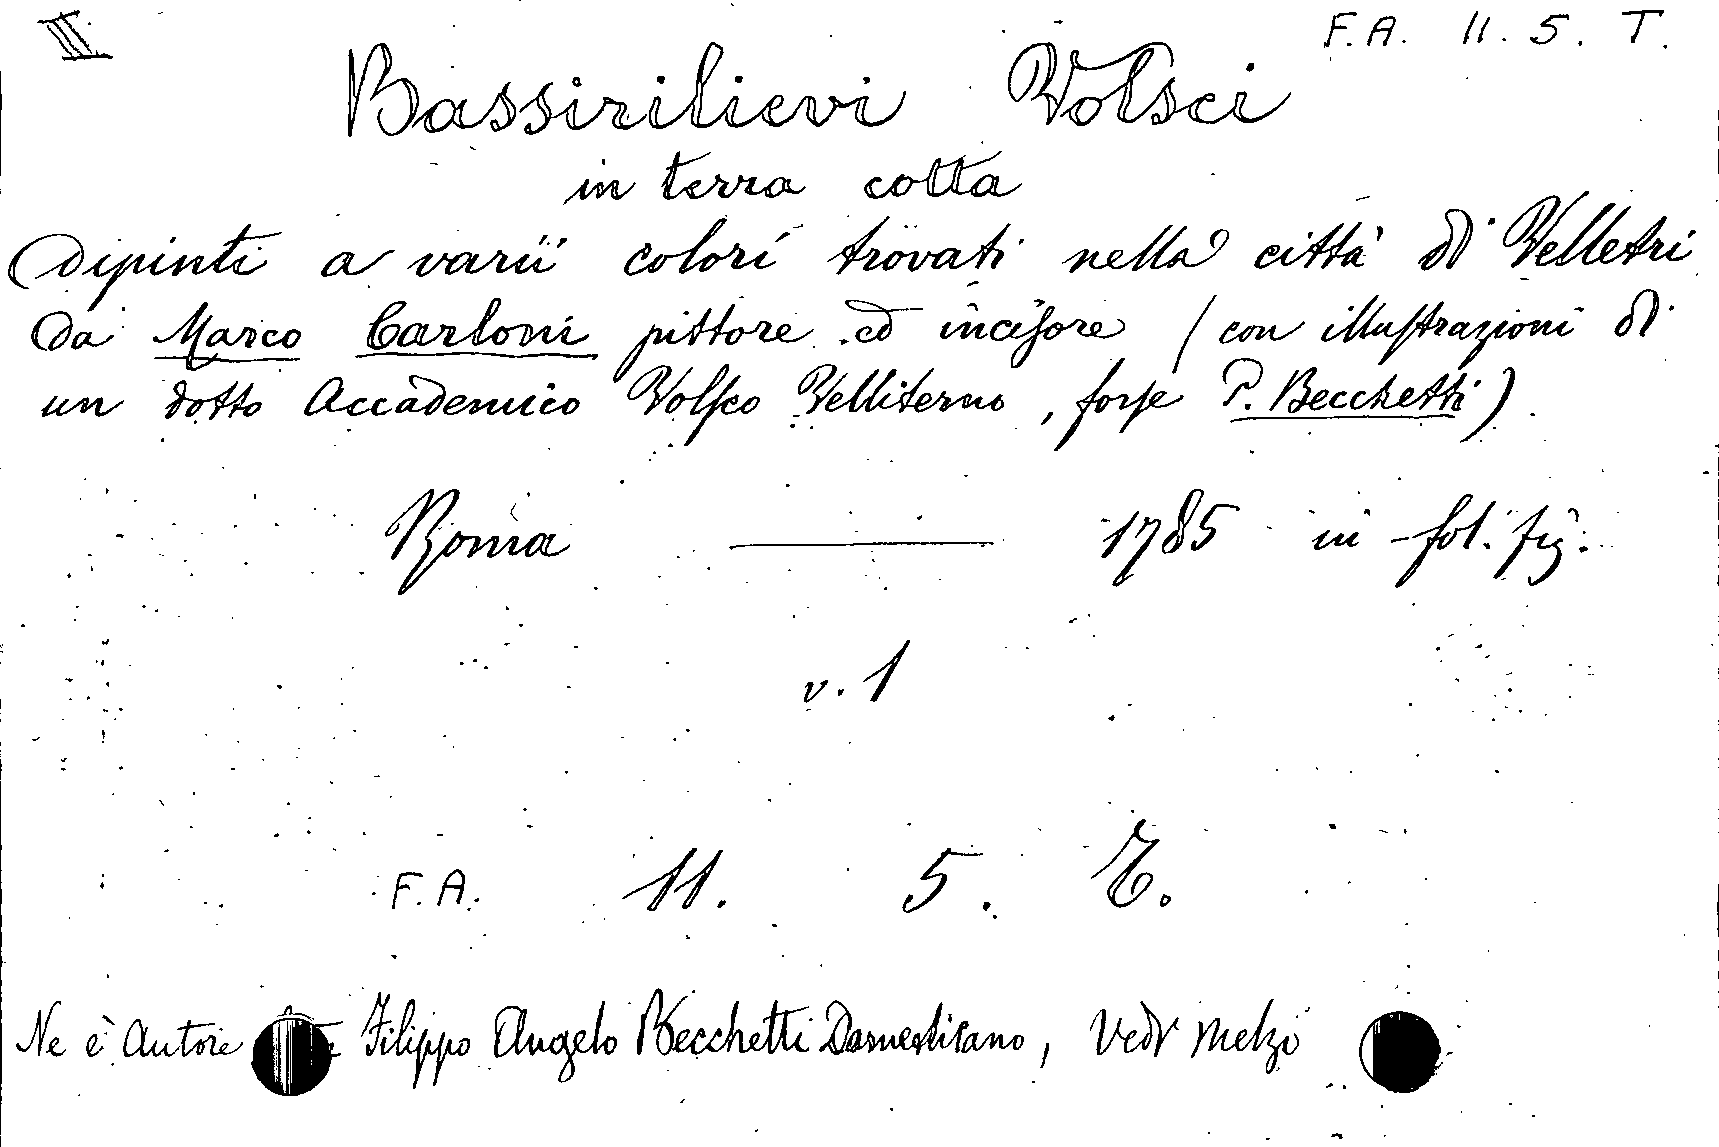 F.A. 11. 5. T.
Bassirilievi Volsci
in terra cotta
dipinti a varii colori trovati nella città di Velletri
da Marco Carloni pittore ed incisore (con illustrazioni di
un dotto Accademico Volsco Velliterno, forse P. Becchetti)
Roma ——— 1785 in fol. fig.
v. 1
F.A. 11. 5. T.
Ne è Autore Filippo Angelo Becchetti Domenicano, Vedi Melzi